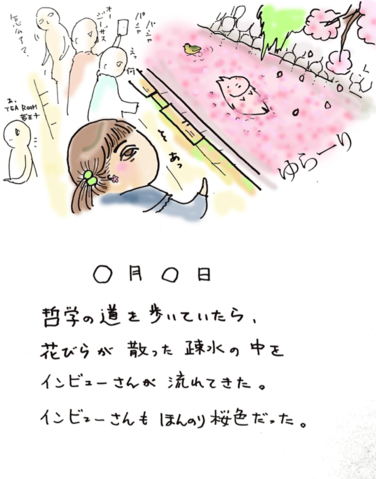 パシャ
パシャ
えっ何
あっ
TEA ROOM
ゆらーり
〇月〇日
哲学の道を歩いていたら、
花びらが散った疎水の中を
インビューさんが流れてきた。
インビューさんもほんのり桜色だった。